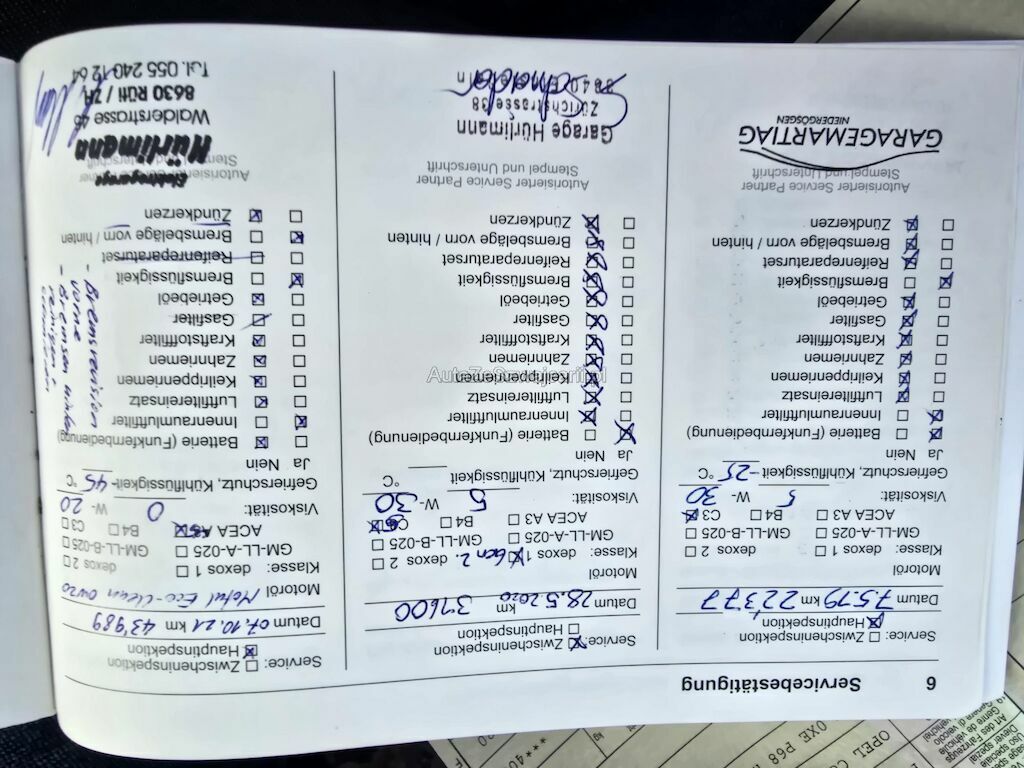 6 Servicebestätigung
Service: Zwischeninspektion
Hauptinspektion
Datum 7.5.19 km 22'377
Motoröl
Klasse: dexos 1 dexos 2
GM-LL-A-025 GM-LL-B-025
ACEA A3 B4 C3
Viskosität: 5 W- 30
Gefrierschutz, Kühlflüssigkeit -25 °C
Ja Nein
Batterie (Funkfernbedienung)
Innenraumluftfilter
Luftfiltereinsatz
Keilrippenriemen
Zahnriemen
Kraftstofffilter
Gasfilter
Getriebeöl
Bremsflüssigkeit
Reifenreparaturset
Bremsbeläge vorn / hinten
Zündkerzen
Autorisierter Service Partner
Stempel und Unterschrift
GARAGEMARTIAG
NIEDERGÖSGEN
Service: Zwischeninspektion
Hauptinspektion
Datum 28.5.2020 km 37600
Motoröl
Klasse: dexos 1 Gen 2. dexos 2
GM-LL-A-025 GM-LL-B-025
ACEA A3 B4
Viskosität: 5 W- 30
Gefrierschutz, Kühlflüssigkeit °C
Ja Nein
Batterie (Funkfernbedienung)
Innenraumluftfilter
Luftfiltereinsatz
Keilrippenriemen
Zahnriemen
Kraftstofffilter
Gasfilter
Getriebeöl
Bremsflüssigkeit
Reifenreparaturset
Bremsbeläge vorn / hinten
Zündkerzen
Autorisierter Service Partner
Stempel und Unterschrift
Garage Hürlimann
Zürichstrasse 38
Service: Zwischeninspektion
Hauptinspektion
Datum 07.10.21 km 43'989
Motoröl Motul Eco-clean 0W20
Klasse: dexos 1 dexos 2
GM-LL-A-025 GM-LL-B-025
ACEA B4 C3
Viskosität: 0 W- 20
Gefrierschutz, Kühlflüssigkeit -45 °C
Ja Nein
Batterie (Funkfernbedienung)
Innenraumluftfilter
Luftfiltereinsatz
Keilrippenriemen
Zahnriemen
Kraftstofffilter
Gasfilter
Getriebeöl
Bremsflüssigkeit
Reifenreparaturset
Bremsbeläge vorn / hinten
Zündkerzen
- Bremsrevision
vorne
- Bremsen
Autorisierter Service Partner
Elektrogarage
Hürlimann
Walderstrasse 45
8630 Rüti / ZH
Tel. 055 240 12 64
OPEL
Art des Fahrzeugs
Genre de véhicule